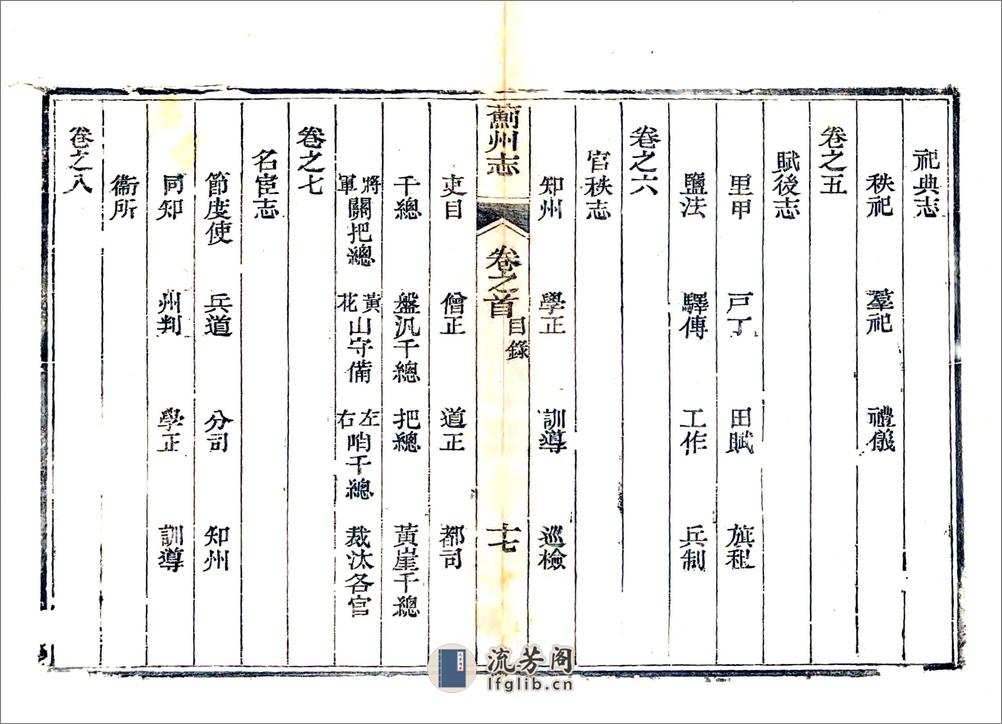 祀典志
秩祀 羣祀 禮儀
卷之五
賦役志
里甲 戸丁 田賦 旗租
鹽法 驛傳 工作 兵制
卷之六
官秩志
知州 學正 訓導 巡檢
薊州志 卷之首 目錄 十七
吏目 僧正 道正 都司
千總 盤汛千總 把總 黃崖千總
將軍關把總 黃花山守備 左右哨千總 裁汰各官
卷之七
名宦志
節度使 兵道 分司 知州
同知 州判 學正 訓導
衞所
卷之八
流芳阁
lfglib.cn